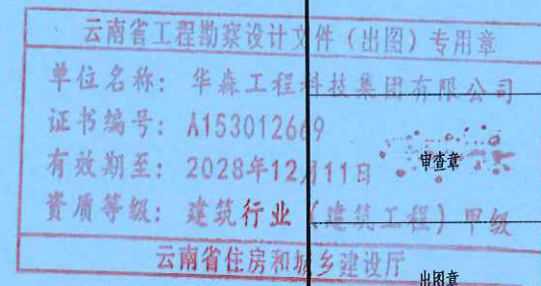 云南省工程勘察设计文件（出图）专用章
单位名称：华森工程科技集团有限公司
证书编号：A153012669
有效期至：2028年12月11日
审查章
资质等级：建筑行业（建筑工程）甲级
云南省住房和城乡建设厅
出图章